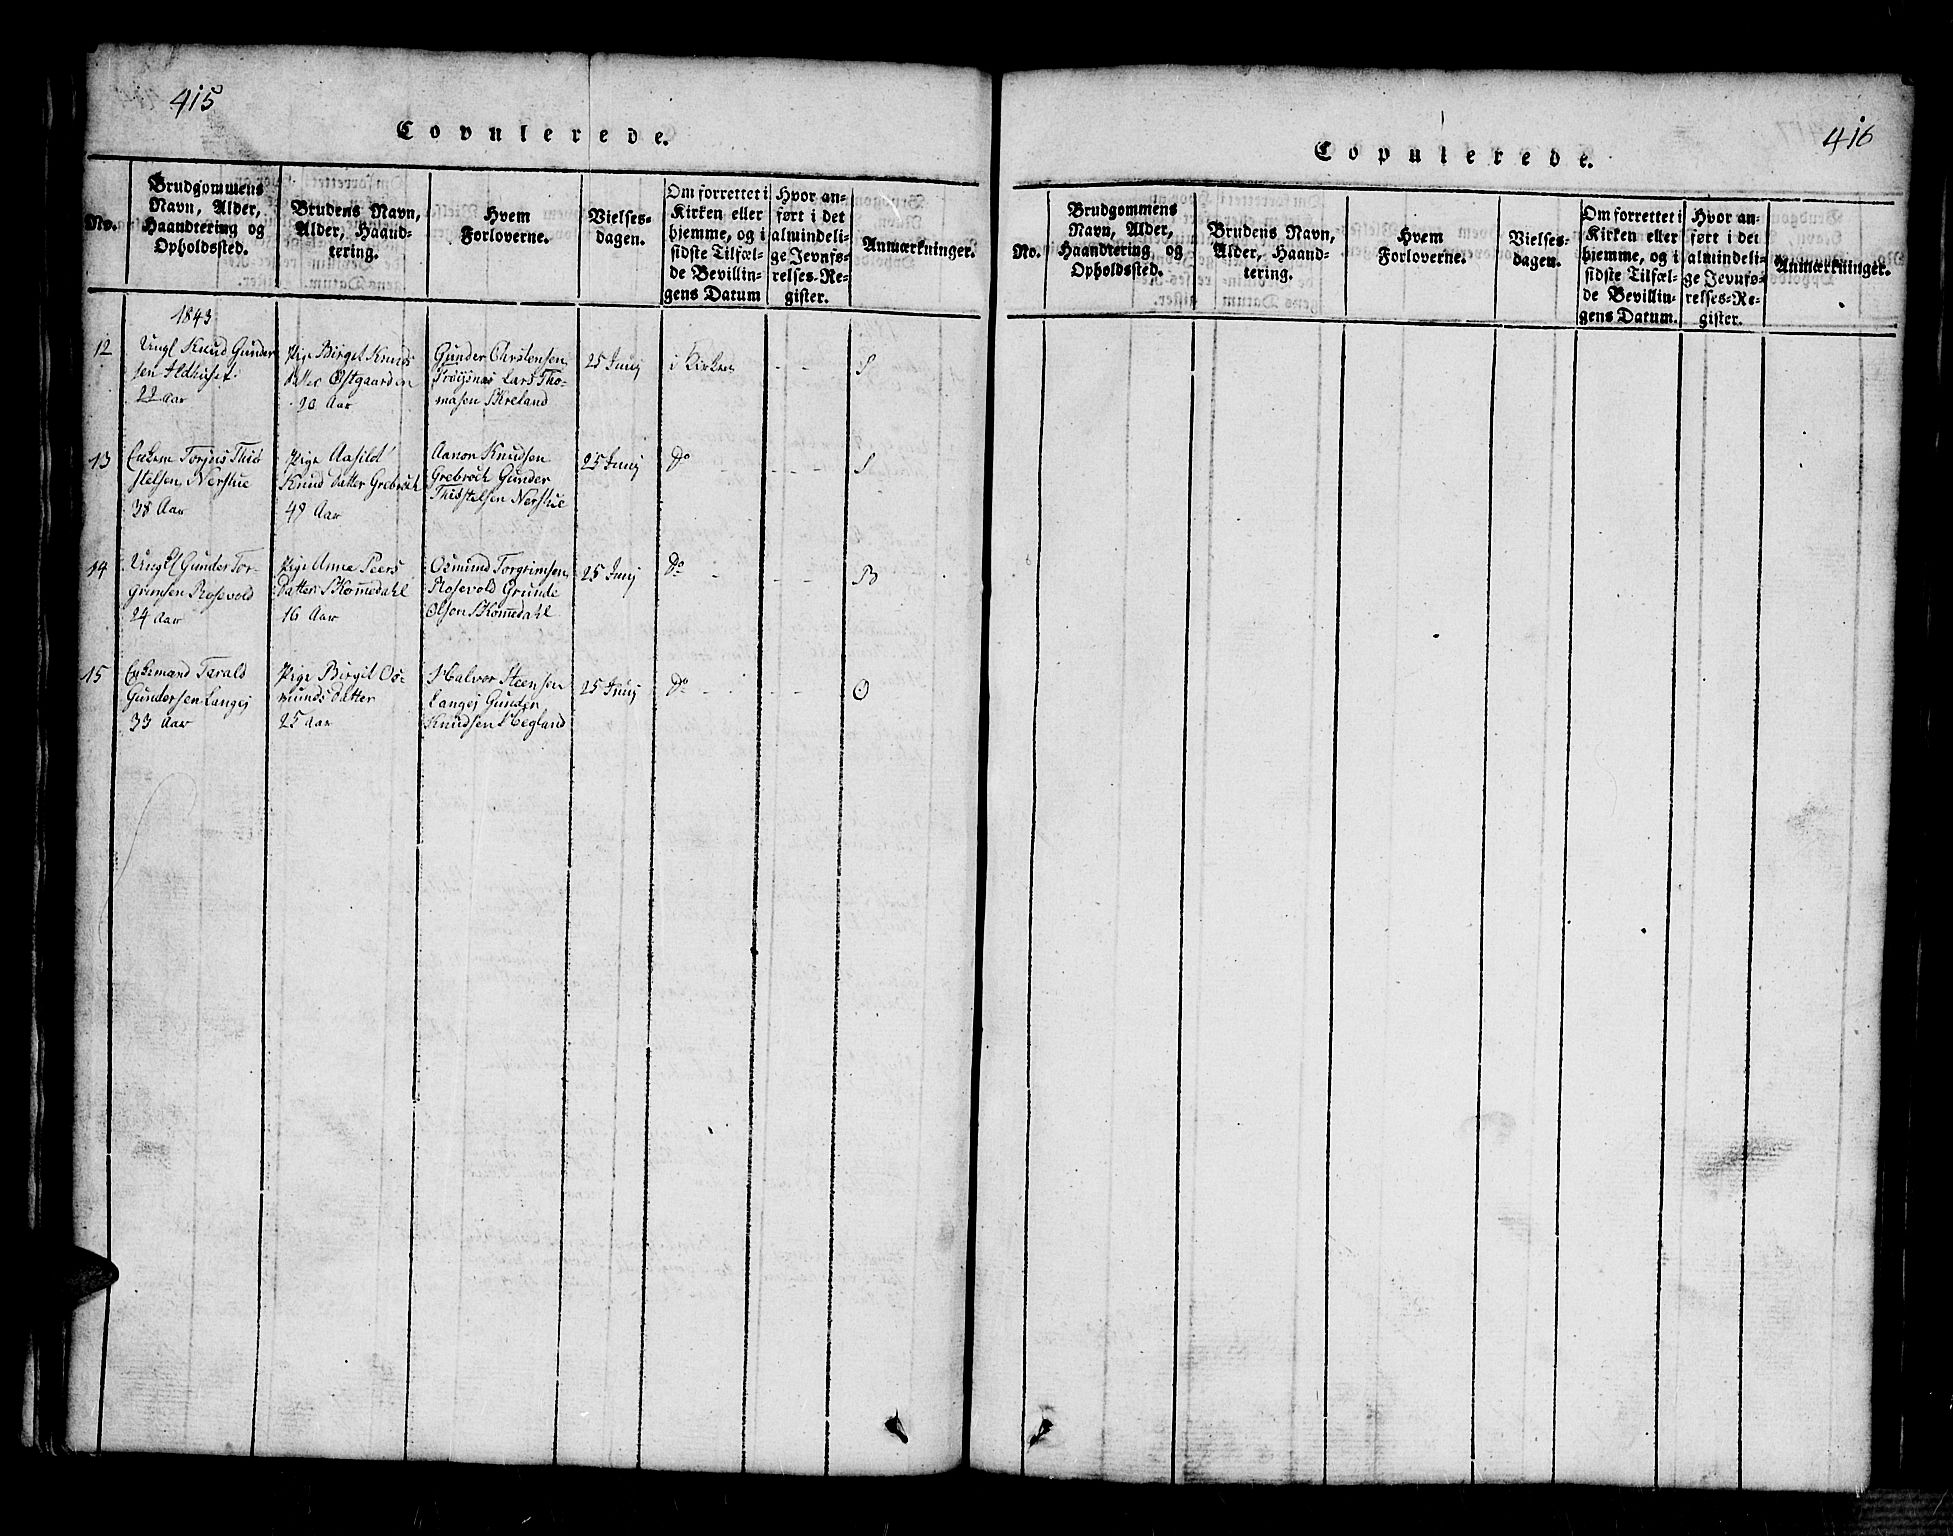 415
Copulerede.
No.
Brudgommens
Navn, Alder,
Haandtering og
Opholdssted.
Brudens Navn,
Alder, Haand-
tering.
Hvem
Forloverne.
Vielses-
dagen.
Om forrettet i
Kirken eller
hjemme, og i
sidste Tilfæl-
de Bevillin-
gens Datum
Hvor an-
ført i det
almindeli-
ge Jevnfø-
relses-Re-
gister.
Anmærkninger.
1843
12
Ungl Knud Gunder
sen
22 Aar
Pige Birget Knuds
datter Østgaarden
20 Aar
Gunder Christensen
Frøÿsnes Lars Tho-
masen Skreland
25 Junj
i Kirken
S
13
Enkem Torjus This
stelsen Nerstue
38 Aar
Pige Aasild
Knud datter Grebrok
49 Aar
Aanon Knudsen
Grebrock Gunder
Thisstelsen Nerstue
25 Junj
Do
S
14
Ungkl Gunder Tor-
grimsen Rosevold
24 Aar
Pige Anna Peers
Datter Skomedahl
16 Aar
Osmund Torgrimsen
Rosevold Grunde
Olsen Skomedahl
25 Junj
Do
B
15
Enkemand Tarald
Gundersen Langej
33 Aar
Pige Birgit Os-
munds datter
25 Aar
Halvor Steensen
Langej Gunder
Knudsen Hegland
25 Junj
Do
O
416
Copulerede.
No.
Brudgommens
Navn, Alder,
Haandtering og
Opholdssted.
Brudens Navn,
Alder, Haand-
tering.
Hvem
Forloverne.
Vielses-
dagen.
Om forrettet i
Kirken eller
hjemme, og i
sidste Tilfæl-
de Bevillin-
gens Datum.
Hvor an-
ført i det
almindeli-
ge Jevnfø-
relses-Re-
gister.
Anmærkninger.